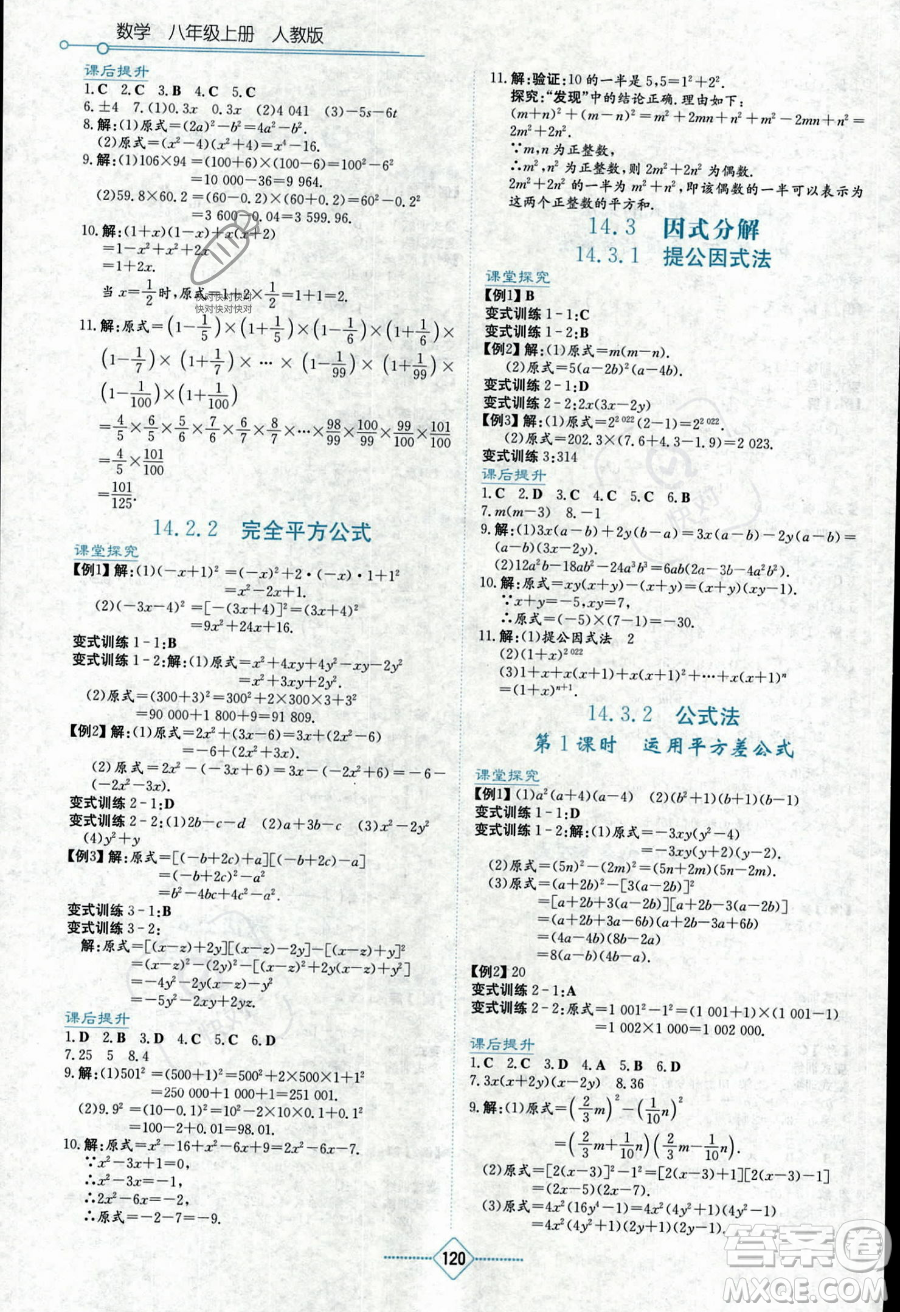 数学 八年级上册 人教版
课后提升
1.C 2.C 3.C 4.C 5.C
6.±4 7.(1)0.3x 0.3x (2)4 041 (3)-5s-6t
8.解:(1)原式=(2a)²-b²=4a²-b².
(2)原式=(x²-4)(x²+4)=x⁴-16.
9.解:(1)106×94=(100+6)×(100-6)
=10 000-36=9 964.
(2)59.8×60.2=(60-0.2)×(60+0.2)
=3 600-0.04=3 599.96.
10.解:(1+x)(1-x)+x(x+2)-1
=1-x²+x²+2x-1
=2x.
当x=1/2时,原式=2x=2×1/2=1.
11.解:原式=(1-1/5)×(1+1/5)×(1-1/6)×(1+1/6)×
(1-1/7)×(1+1/7)×…×(1-1/99)×(1+1/99)×
(1-1/100)×(1+1/100)
=4/5×6/5×5/6×7/6×…×98/99×100/99×99/100×101/100
=4/5×101/100
=101/125.
14.2.2 完全平方公式
课堂探究
【例1】解:(1)(-x+1)²=(-x)²+2·(-x)·1+1²
=x²-2x+1.
(2)(-3x-4)²=[-(3x+4)]²=(3x+4)²
=9x²+24x+16.
变式训练1-1:B
变式训练1-2:解:(1)原式=x²+4xy+4y²-xy-2y²
=x²+3xy+2y².
(2)原式=(300+3)²=300²+2×300×3+3²
=90 000+1 800+9=91 809.
【例2】解:(1)原式=2x²+(3x-6)=2x²-(-3x+6)
(2)原式=2x²+(3x-6)=2x²-(-3x+6)
变式训练2-1:D
变式训练2-2:(1)2b-c-d (2)a+3b (3)x²-2x
(4)y²+y
【例3】解:原式=[(-b+2c)+a][(-b+2c)-a]
=(-b+2c)²-a²
=b²-4bc+4c²-a².
变式训练3-1:B
变式训练3-2:
解:原式=[(x-z)+2y][(x-z)-2y]-[(x-z)+y]²
课后提升
1.D 2.B 3.D 4.C 5.D 6.D
7.25 5 8.4
9.解:(1)501²=(500+1)²=500²+2×500×1+1²=
250 000+1 000+1=251 001.
(2)9.9²=(10-0.1)²=10²-2×10×0.1+0.1²
=100-2+0.01=98.01.
10.解:原式=x²-16+x²-6x+9=2x²-6x-7.
∵x²-3x+1=0,
∴x²-3x=-1.
∴2x²-6x=-2.
∴原式=-2-7=-9.
11.解:验证:10的一半是5,5=1²+2².
探究:“发现”中的结论正确.理由如下:
(m+n)²+(m-n)²=m²+2mn+n²+m²-2mn+n²=
2m²+2n².
∵m,n为正整数,
∴m²,n²为正整数,则2m²+2n²为偶数.
2m²+2n²的一半为m²+n²,即该偶数的一半可以表示为
这两个正整数的平方和.
14.3 因式分解
14.3.1 提公因式法
课堂探究
【例1】B
变式训练1-1:C
变式训练1-2:B
【例2】解:(1)原式=m(m-n).
(2)原式=5(a-2b)(a-2b-4).
变式训练2-1:D
变式训练2-2:2x(3x-2y)
【例3】解:(1)原式=2²⁰²²(2-1)=2²⁰²².
(2)原式=202.3×(7.6+4.3-1.9)=2 023.
变式训练3:314
课后提升
1.C 2.D 3.D 4.C 5.C 6.B
7.m(m-3) 8.-1
9.解:(1)3x(a-b)+2y(a-b)=(a-b)(3x+2y).
(2)12a²b-18ab²-24a³b³=6ab(2a-3b-4a²b²).
10.解:原式=xy(x+y)-(x+y)=(x+y)(xy-1).
∵x+y=-5,xy=7,
∴原式=(-5)×(7-1)=-30.
11.解:(1)提公因式法 2
(2)(1+x)²⁰²²
(3)1+x+x(x+1)+x(x+1)²+…+x(x+1)ⁿ
=(1+x)ⁿ⁺¹.
14.3.2 公式法
第1课时 运用平方差公式
课堂探究
【例1】(1)a²(a+4)(a-4) (2)(b²+1)(b+1)(b-1)
变式训练1-1:D
变式训练1-2:解:(1)原式=-3xy(y²-4)
=-3xy(y+2)(y-2).
(2)原式=(5n)²-(2m)²=(5n+2m)(5n-2m).
(3)原式=(a+2b)²-[3(a-2b)]²
=[(a+2b)+3(a-2b)][(a+2b)-3(a-2b)]
=(a+2b+3a-6b)(a+2b-3a+6b)
=(4a-4b)(-2a+8b)
=-8(a-b)(a-4b).
【例2】20
变式训练2-1:A
变式训练2-2:解:原式=1 001²-1²=(1 001+1)×(1 001-1)
=1 002×1 000=1 002 000.
课后提升
1.C 2.C 3.D 4.A 5.B 6.D
7.3x(x+2y)(x-2y) 8.36
9.解:(1)原式=(2/3m)²-(1/10n)²
=(2/3m+1/10n)(2/3m-1/10n).
(2)原式=[2(x-3)]²-1²=[2(x-3)+1][2(x-3)-1]
=(2x-5)(2x-7).
(3)原式=4x²(16y⁴-1)=4x²(4y²+1)(4y²-1)
=4x²(4y²+1)(2y+1)(2y-1).
120
快对快对快对
快对快对快对
答案圈
MXQE.COM